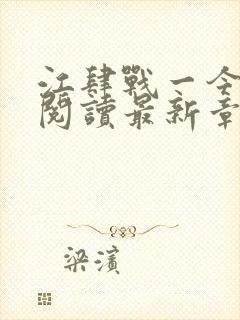 江肆戰一令
閱讀最新章
梁濱